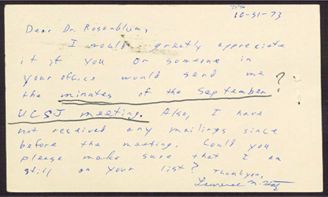 10-31-73
Dear Dr. Rosenblum,
I would greatly appreciate
it if you or someone in
your office would send me
the minutes of the September ?
UCSJ meeting. Also, I have
not received any mailings since
before the meeting. Could you
please make sure that I am
still on your list? Thank you,
Lawrence